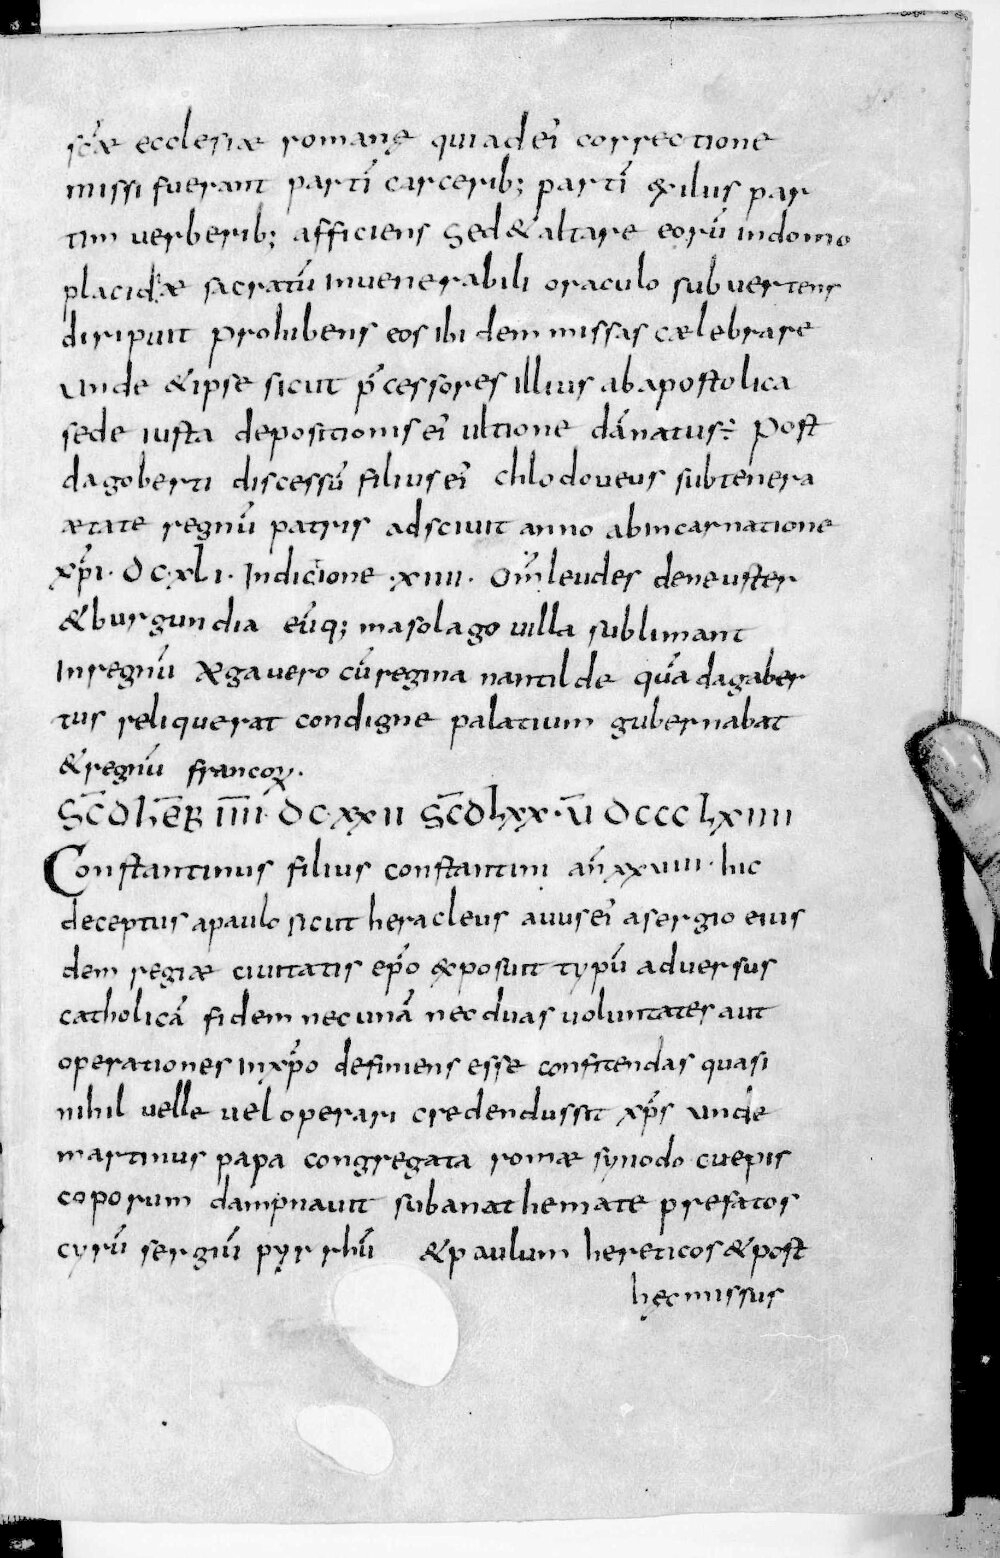 sc̄ae ecclesiae romanę qui ad ei᾽ correctione
missi fuerant partī carcerib; partī exiliis par
tim verberib; afficiens Sed & altare eorū in domo
placidiae sacratū in venerabili oraculo subvertens
diripuit prohibens eos ibi dem missas caelebrare
unde & ipse sicut p̄cessores illius ab apostolica
sede iusta depositionis ei᾽ ultione dānatus; Post
dagoberti discessū filius ei᾽ chlodoveus sub tenera
aetate regnū patris adscivit anno ab incarnatione
xp̄i · DC·XLI · Indicione ·xiiii· Om̄ leudes de neuster
& burgundia eūq; masolago villa sublimant
In regnū Aega vero cū regina nantilde quā dagaber
tus reliquerat condigne palatium gubernabat
& regnū francoꝝ.
SC̄D HEB̄ IIII DC·XXII SC̄D LXX·V̄I DCCCLXIIII
Constantinus filius constantini an̄ xxviii · hic
deceptus a paulo sicut heracleus avus ei᾽ a sergio eius
dem regiae civitatis ep̄o exposuit typū adversus
catholicā fidem nec unā nec duas voluntates aut
operationes in xp̄o definiens esse confitendas quasi
nihil velle vel operari credendus sit xp̄s unde
martinus papa congregata romae synodo cv epis
coporum dampnavit sub anathemate prefatos
cyrū sergiū pyrrhū & paulum hereticos & post
hęc missus